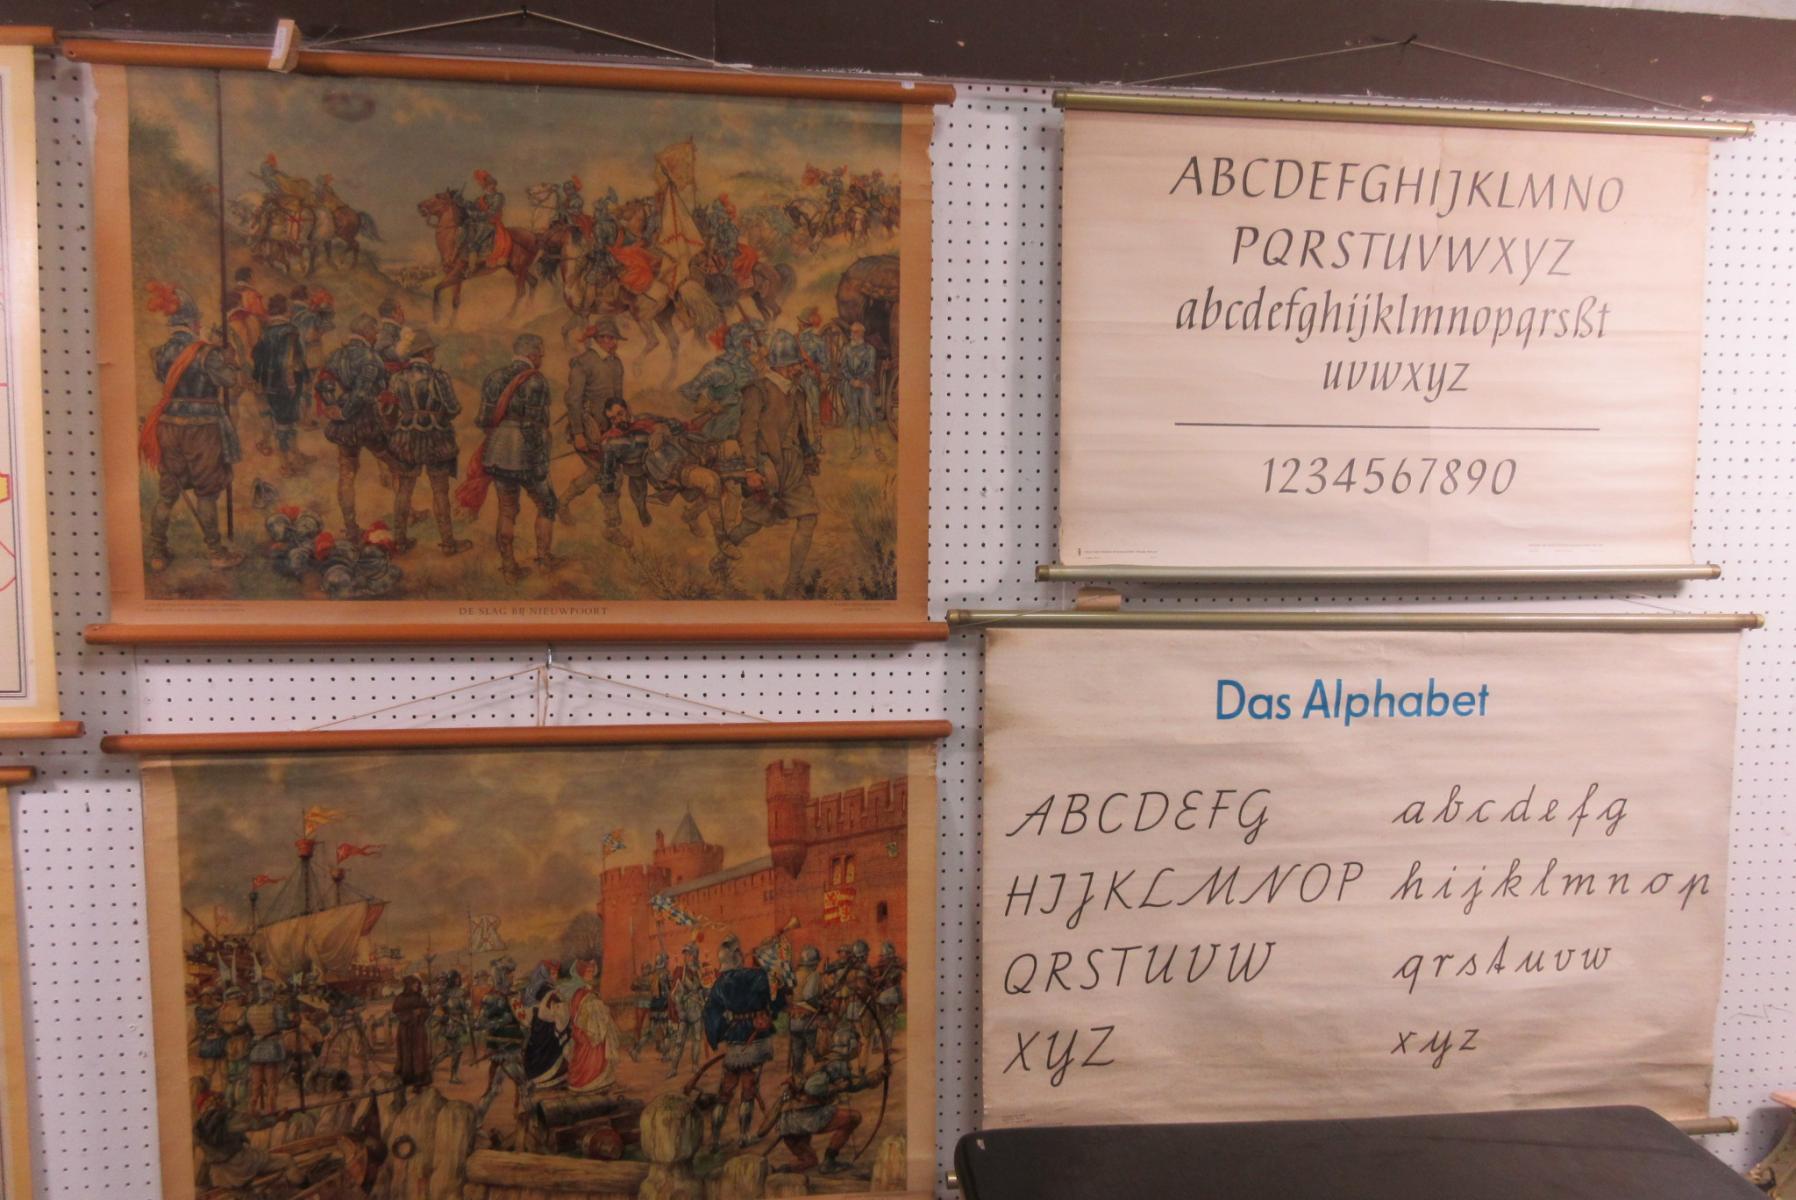 DE SLAG BIJ NIEUWPOORT
ABCDEFGHIJKLMNO
PQRSTUVWXYZ
abcdefghijklmnopqrsßt
uvwxyz
1234567890
Das Alphabet
ABCDEFG abcdefg
HIJKLMNOP hijklmnop
QRSTUVW qrstuvw
XYZ xyz